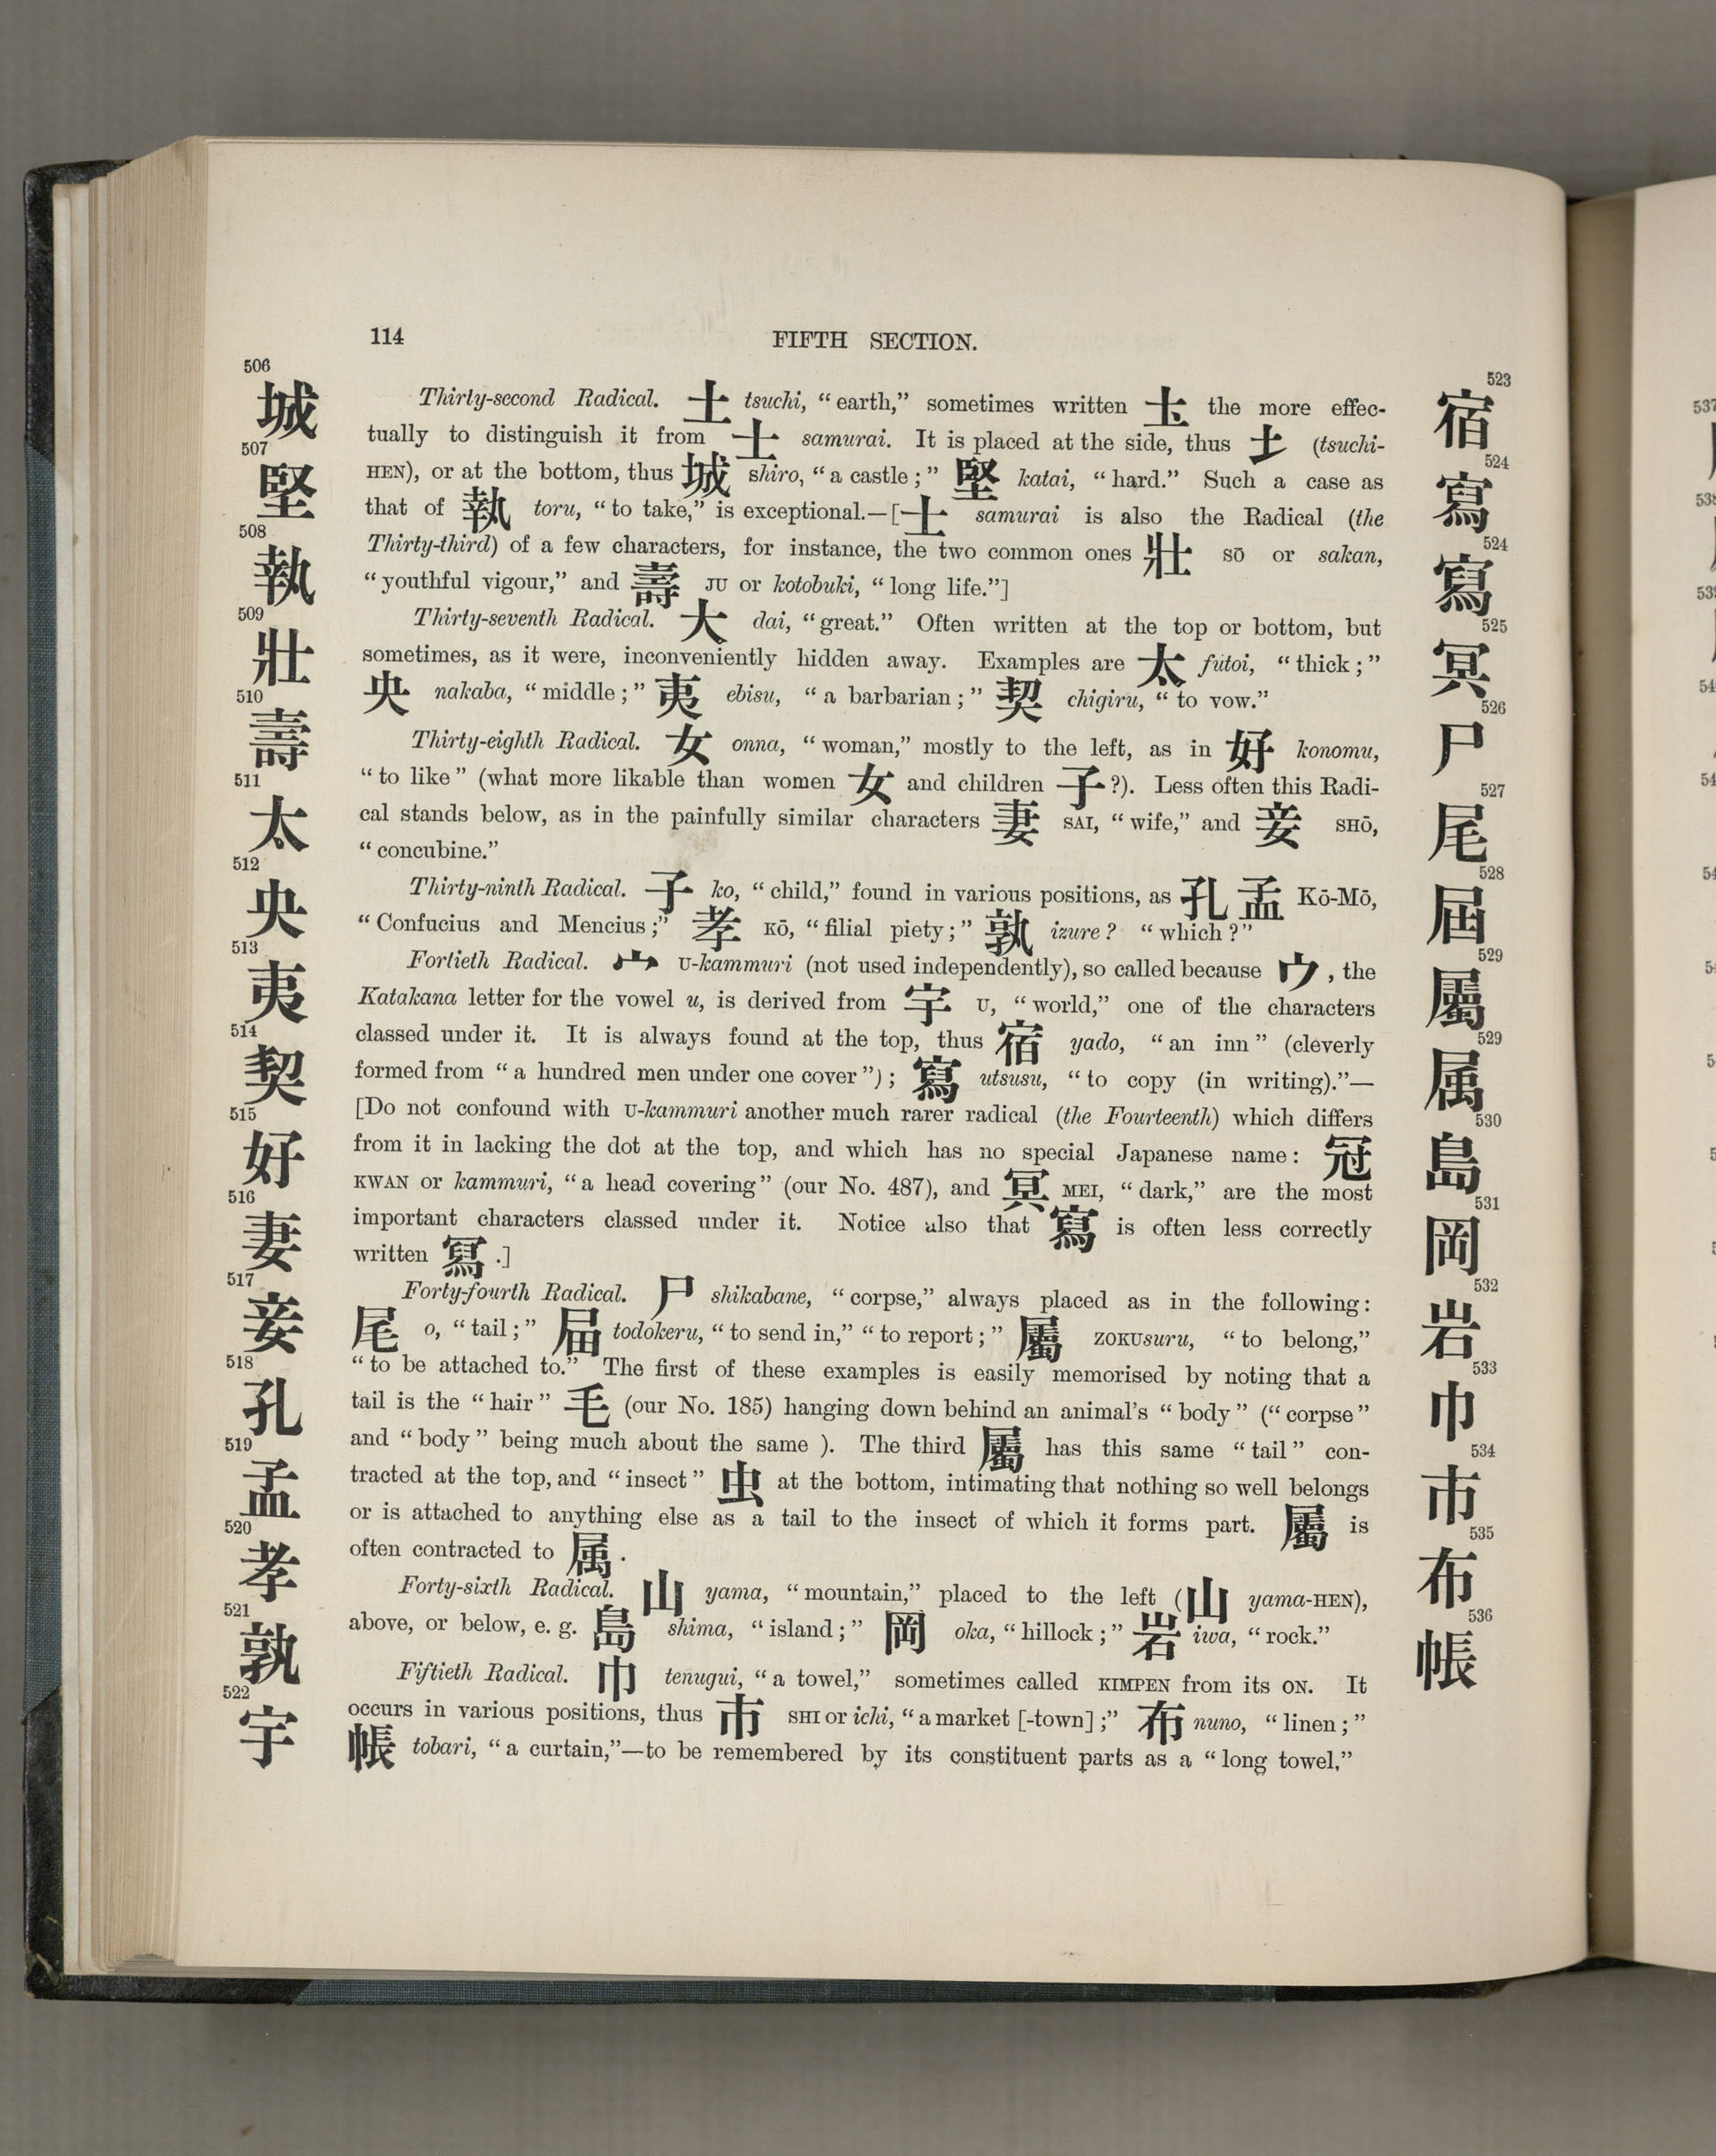 114 FIFTH SECTION.
506
城
507
堅
508
執
509
壯
510
壽
511
太
512
央
513
夷
514
契
515
好
516
妻
517
妾
518
孔
519
孟
520
孝
521
孰
522
宇
Thirty-second Radical. 土 tsuchi, “earth,” sometimes written 圡 the more effec-
tually to distinguish it from 士 samurai. It is placed at the side, thus 土 (tsuchi-
HEN), or at the bottom, thus 城 shiro, “a castle;” 堅 katai, “hard.” Such a case as
that of 執 toru, “to take,” is exceptional.—[士 samurai is also the Radical (the
Thirty-third) of a few characters, for instance, the two common ones 壯 sō or sakan,
“youthful vigour,” and 壽 JU or kotobuki, “long life.”]
Thirty-seventh Radical. 大 dai, “great.” Often written at the top or bottom, but
sometimes, as it were, inconveniently hidden away. Examples are 太 futoi, “thick;”
央 nakaba, “middle;” 夷 ebisu, “a barbarian;” 契 chigiru, “to vow.”
Thirty-eighth Radical. 女 onna, “woman,” mostly to the left, as in 好 konomu,
“to like” (what more likable than women 女 and children 子?). Less often this Radi-
cal stands below, as in the painfully similar characters 妻 SAI, “wife,” and 妾 SHŌ,
“concubine.”
Thirty-ninth Radical. 子 ko, “child,” found in various positions, as 孔孟 Kō-Mō,
“Confucius and Mencius;” 孝 KŌ, “filial piety;” 孰 izure? “which?”
Fortieth Radical. 宀 U-kammuri (not used independently), so called because ウ, the
Katakana letter for the vowel u, is derived from 宇 U, “world,” one of the characters
classed under it. It is always found at the top, thus 宿 yado, “an inn” (cleverly
formed from “a hundred men under one cover”); 寫 utsusu, “to copy (in writing).”—
[Do not confound with U-kammuri another much rarer radical (the Fourteenth) which differs
from it in lacking the dot at the top, and which has no special Japanese name: 冠
KWAN or kammuri, “a head covering” (our No. 487), and 冥 MEI, “dark,” are the most
important characters classed under it. Notice also that 寫 is often less correctly
written 冩.]
Forty-fourth Radical. 尸 shikabane, “corpse,” always placed as in the following:
尾 o, “tail;” 届 todokeru, “to send in,” “to report;” 屬 ZOKUsuru, “to belong,”
“to be attached to.” The first of these examples is easily memorised by noting that a
tail is the “hair” 毛 (our No. 185) hanging down behind an animal's “body” (“corpse”
and “body” being much about the same ). The third 屬 has this same “tail” con-
tracted at the top, and “insect” 虫 at the bottom, intimating that nothing so well belongs
or is attached to anything else as a tail to the insect of which it forms part. 屬 is
often contracted to 属.
Forty-sixth Radical. 山 yama, “mountain,” placed to the left (山 yama-HEN),
above, or below, e. g. 島 shima, “island;” 岡 oka, “hillock;” 岩 iwa, “rock.”
Fiftieth Radical. 巾 tenugui, “a towel,” sometimes called KIMPEN from its ON. It
occurs in various positions, thus 市 SHI or ichi, “a market [-town];” 布 nuno, “linen;”
帳 tobari, “a curtain,”—to be remembered by its constituent parts as a “long towel,”
523
宿
524
寫
524
寫
525
冥
526
尸
527
尾
528
屆
529
屬
529
属
530
島
531
岡
532
岩
533
巾
534
市
535
布
536
帳